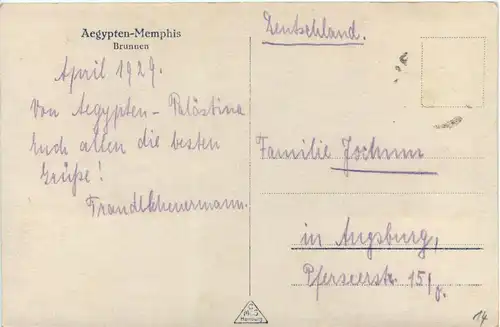 Aegypten-Memphis
Brunnen
April 1929.
Von Aegypten - Palästina
Euch allen die besten
Grüße!
Deutschland.
Familie Jochum
in Augsburg,
Pferseerstr. 15/0.
Hamburg
14